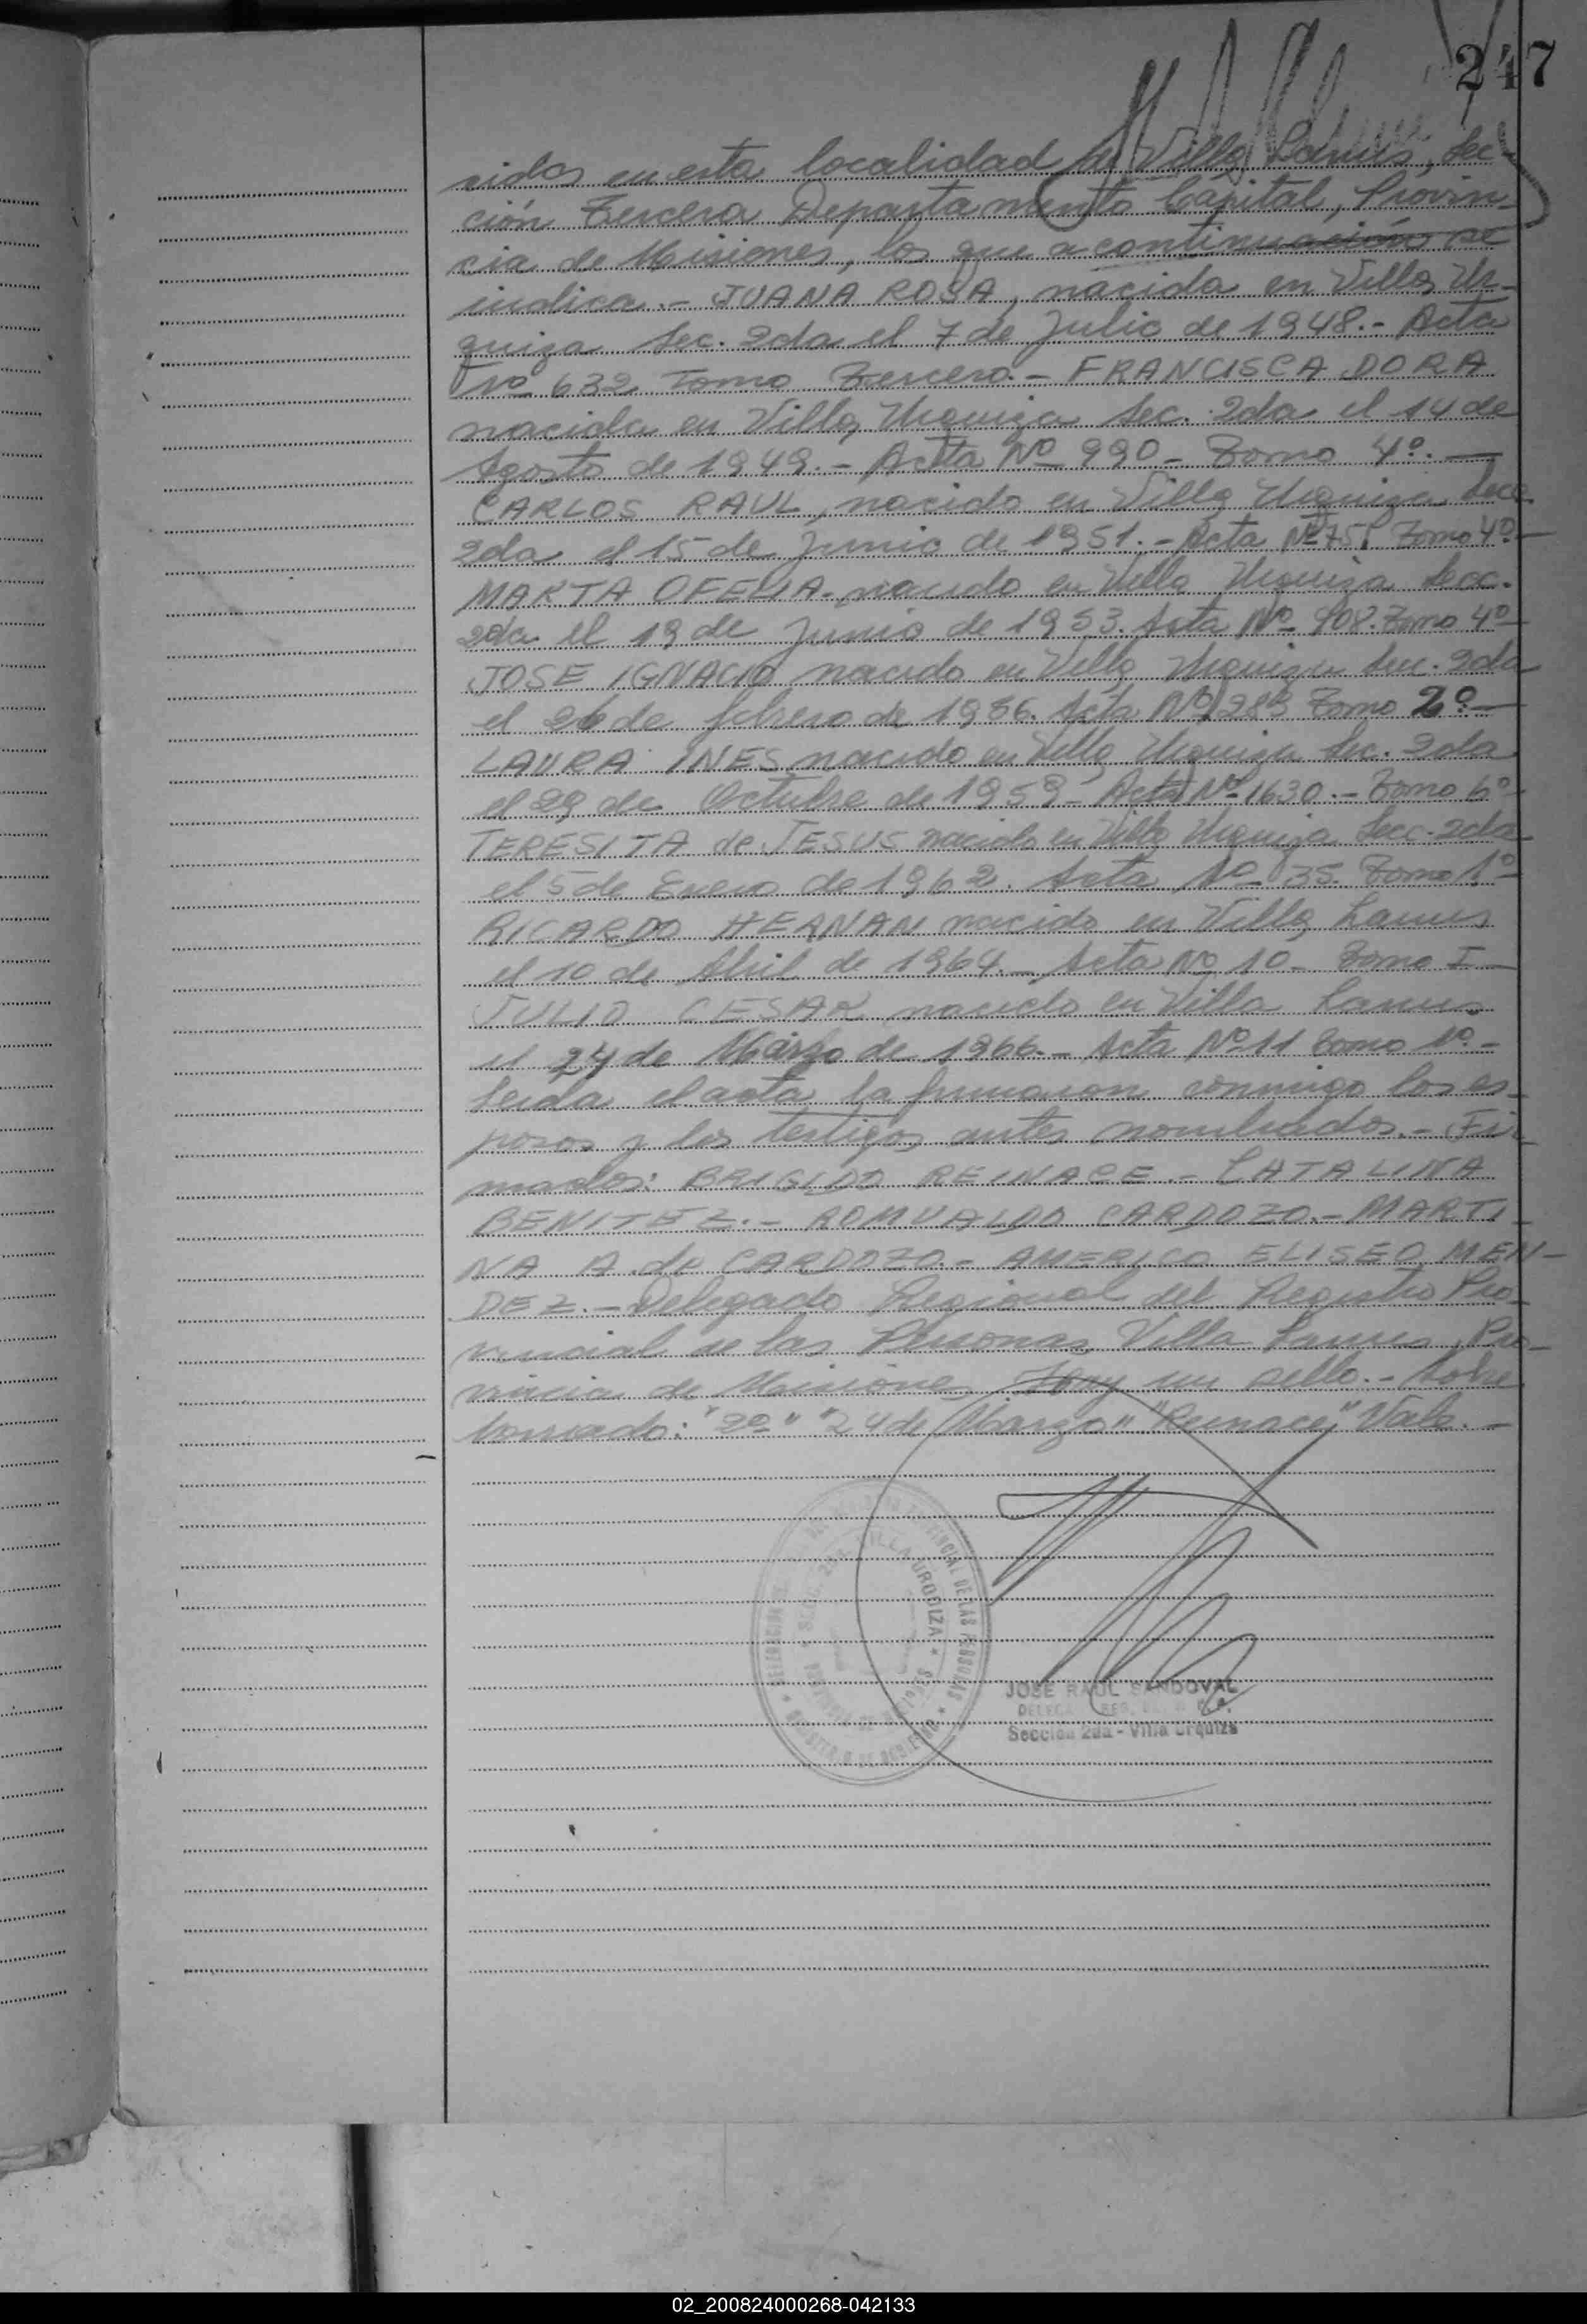 247
cidos en esta localidad de Villa Lanus, Sec-
ción Tercera Departamento Capital, Provin-
cia de Misiones, los que a continuación se
indica.- JUANA ROSA, nacida en Villa Ur-
quiza Sec. 2da el 7 de Julio de 1948.- Acta
Nº 632 Tomo Tercero.- FRANCISCA DORA
nacida en Villa Urquiza Sec. 2da el 14 de
Agosto de 1949.- Acta Nº 990- Tomo 4º.-
CARLOS RAUL, nacido en Villa Urquiza Secc
2da el 15 de Junio de 1951.- Acta Nº 751 Tomo 4º-
MARTA OFELIA- nacido en Villa Urquiza Secc.
2da el 19 de Junio de 1953. Acta Nº 908. Tomo 4º
JOSE IGNACIO nacido en Villa Urquiza Sec. 2da
el 26 de febrero de 1956. Acta Nº 283 Tomo 2º-
LAURA INES nacido en Villa Urquiza Sec. 2da
el 29 de Octubre de 1959- Acta Nº 1630.- Tomo 6º
TERESITA de JESUS nacido en Villa Urquiza Secc. 2da
el 5 de Enero de 1962. Acta Nº 35. Tomo 1º
RICARDO HERNAN nacido en Villa Lanus
el 10 de Abril de 1964.- Acta Nº 10- Tomo I-
JULIO CESAR nacido en Villa Lanus
el 24 de Marzo de 1966.- Acta Nº 11 Tomo 1º-
Leida el acta la firmaron conmigo los es-
posos y los testigos antes nombrados.- Fir-
mados: BRIGIDO REINACE.- CATALINA
BENITEZ.- ROMUALDO CARDOZO.- MARTI-
NA A. de CARDOZO.- AMERICO ELISEO MEN-
DEZ.- Delegado Regional del Registro Pro-
vincial de las Personas Villa Lanus, Pro-
vincia de Misiones Hay un sello.- Sobre
borrado: "2º" "24 de Marzo" "Reinace" Vale.-
VILLA URQUIZA
JOSE RAUL SANDOVAL
Sección 2da - Villa Urquiza
02_200824000268-042133